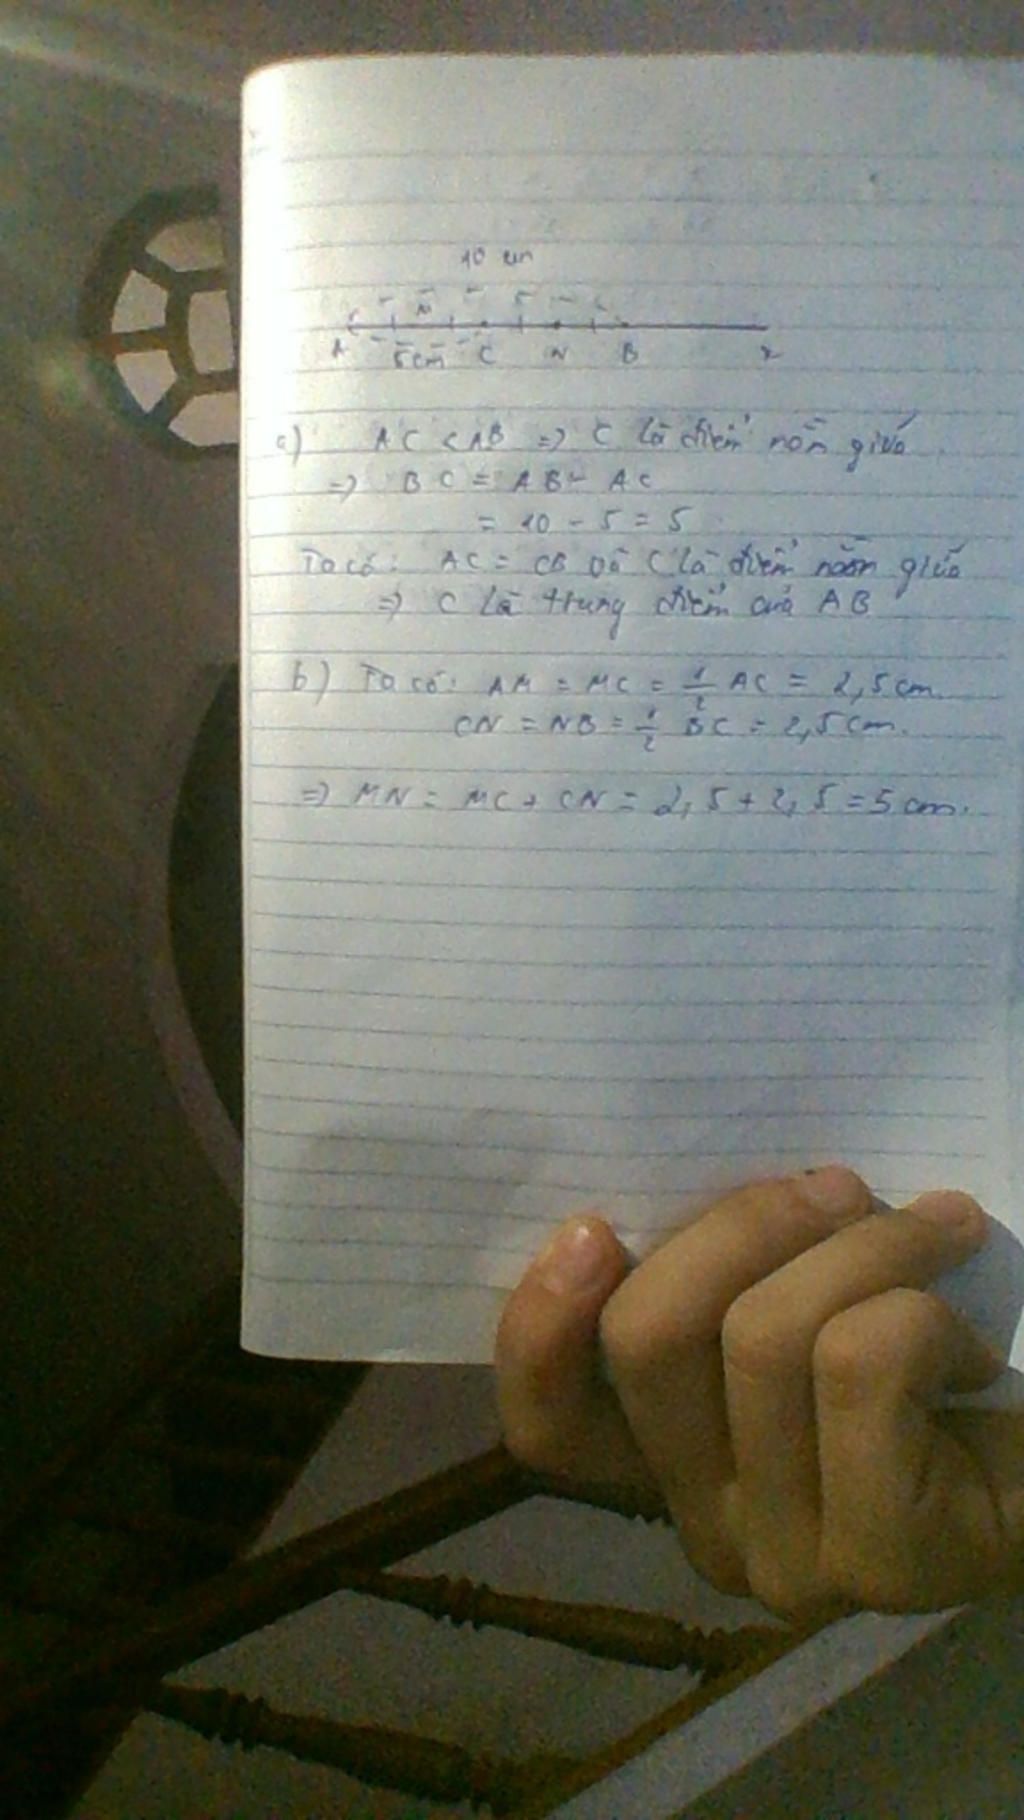 10 cm
M
A 5cm C N B x
a) AC < AB => C là điểm nằm giữa
=> BC = AB - AC
= 10 - 5 = 5
Ta có: AC = CB và C là điểm nằm giữa
=> C là trung điểm của AB
b) Ta có: AM = MC = 1/2 AC = 2,5 cm.
CN = NB = 1/2 BC = 2,5 cm.
=> MN = MC + CN = 2,5 + 2,5 = 5 cm.